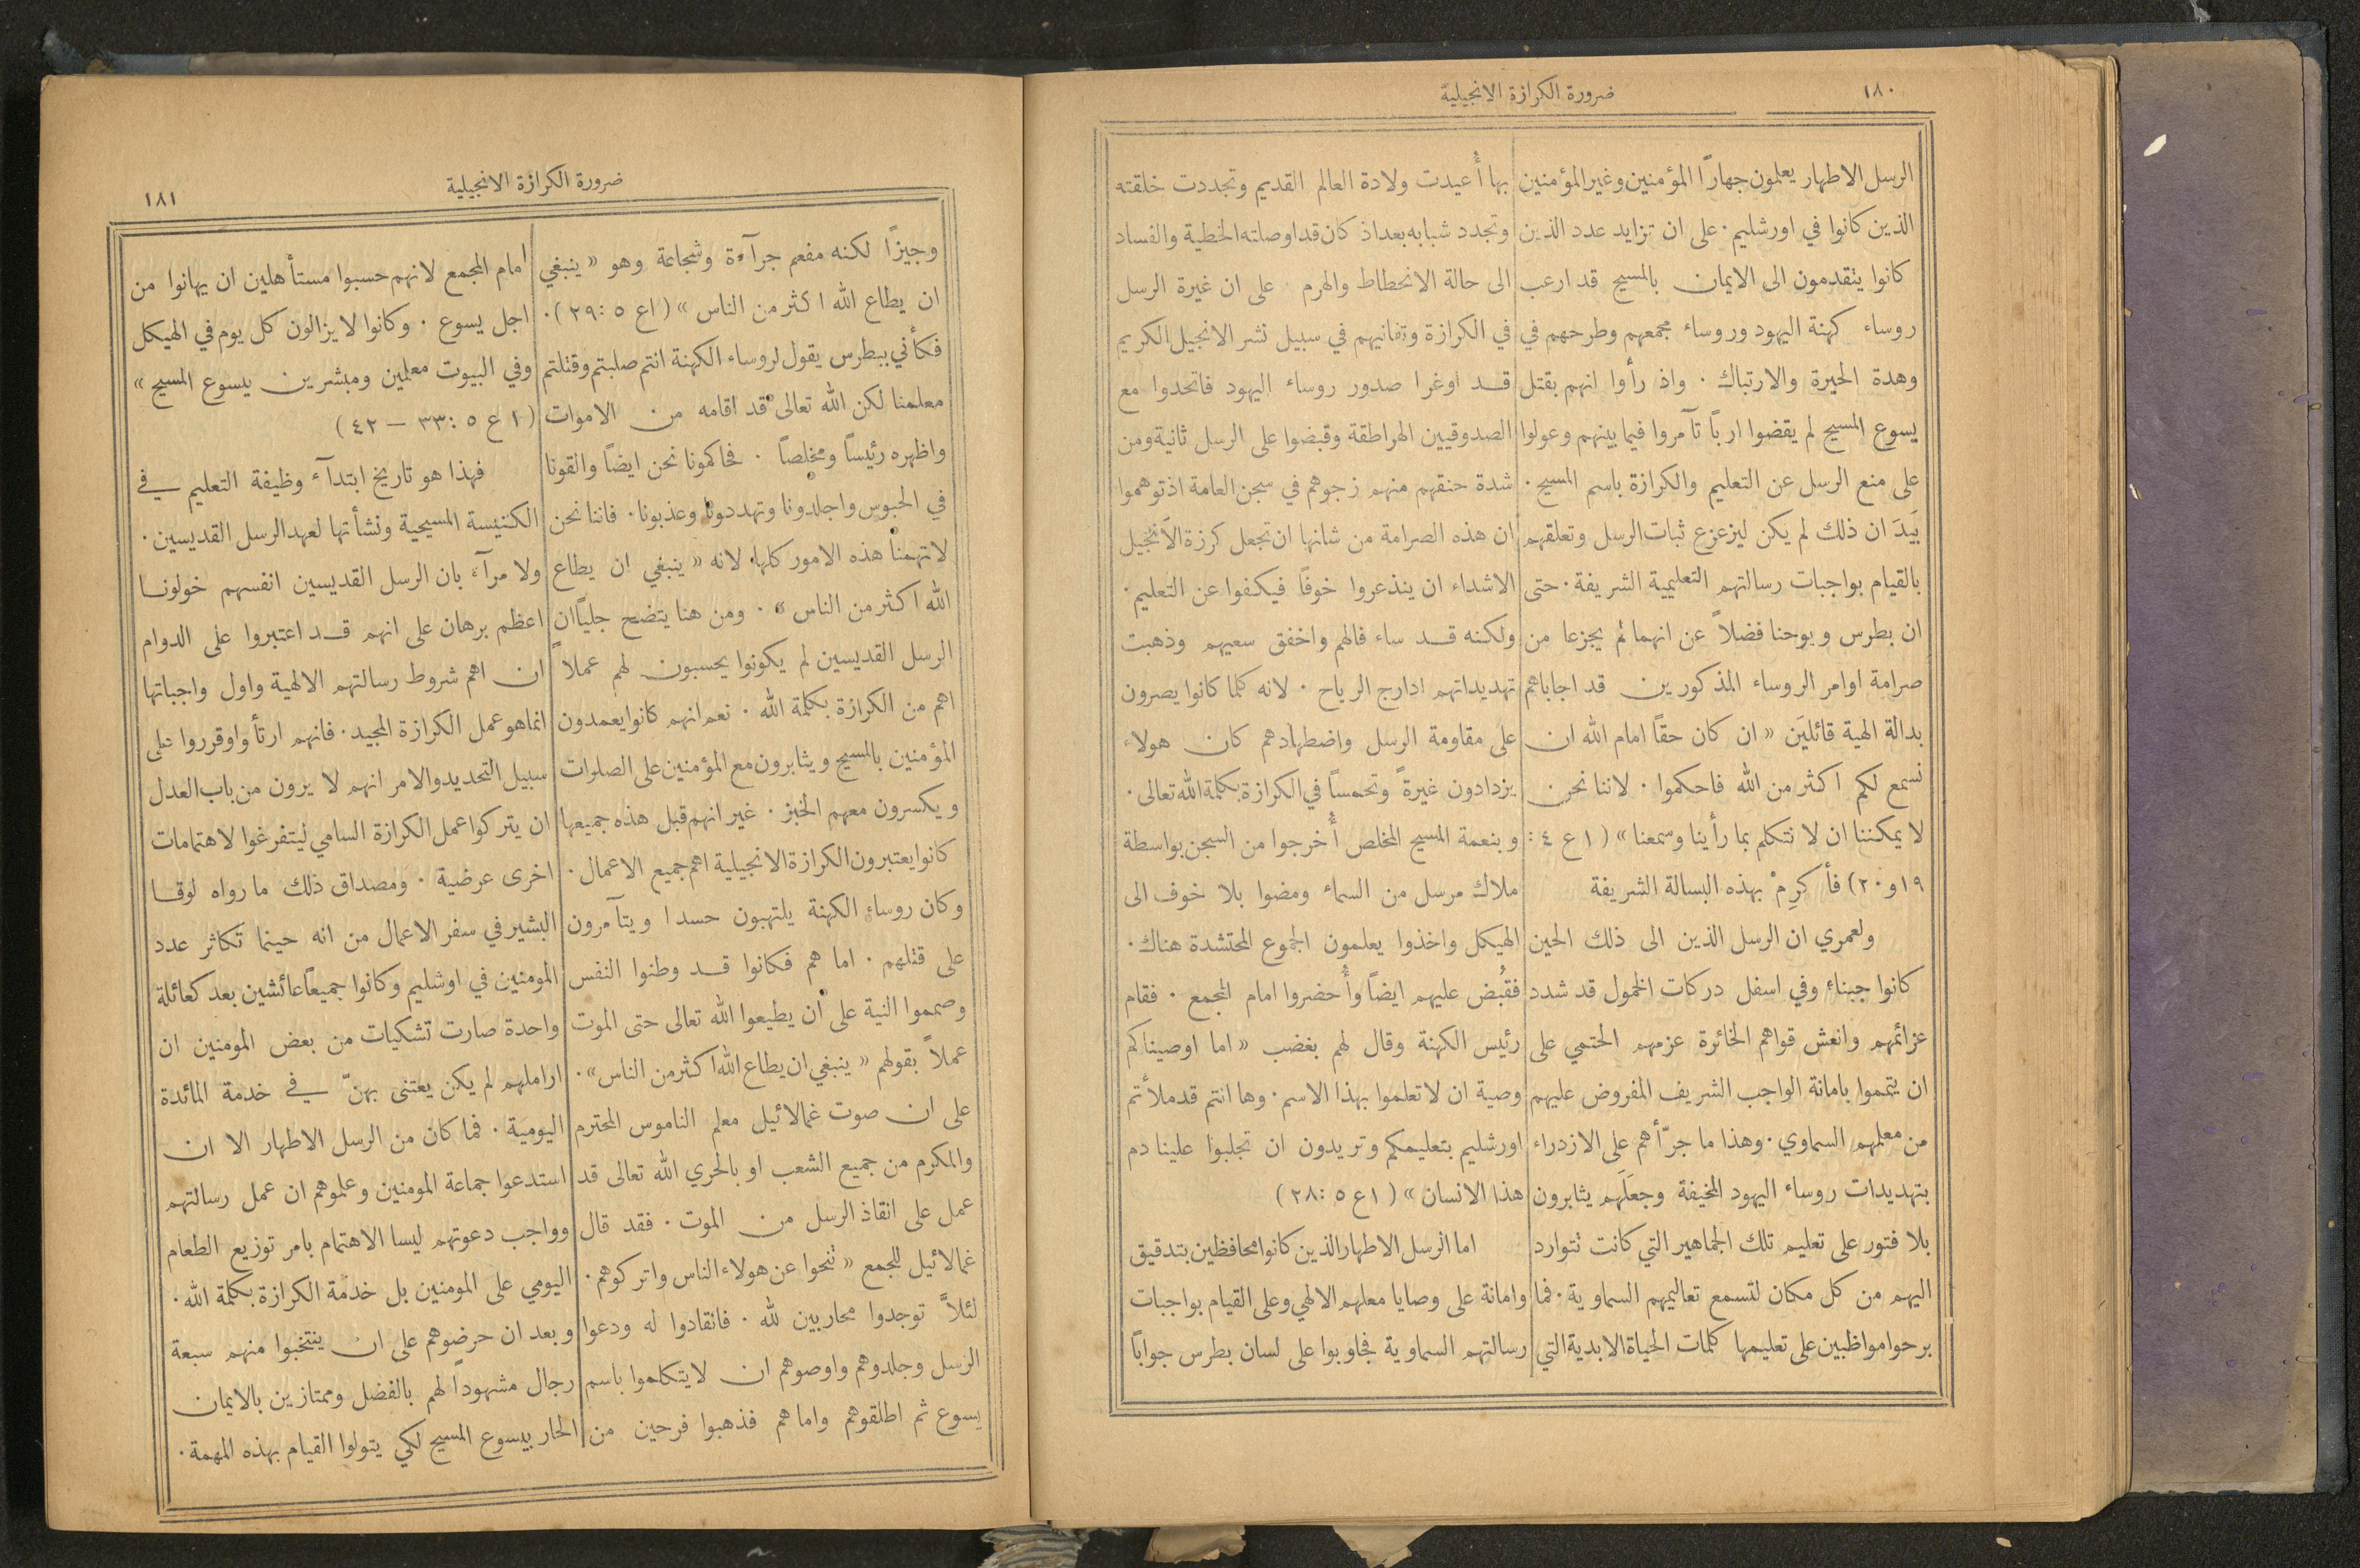 ١٨٠
ضرورة الكرازة الانجيلية
الرسل الاطهار يعلمون جهارًا المؤمنين وغير المؤمنين
الذين كانوا في اورشليم · على ان تزايد عدد الذين
كانوا يتقدمون الى الايمان بالمسيح قد ارعب
روساء كهنة اليهود وروساء مجمعهم وطرحهم في
وهدة الحيرة والارتباك · واذ رأوا انهم بقتل
يسوع المسيح لم يقضوا اربًا تآمروا فيما بينهم وعولوا
على منع الرسل عن التعليم والكرازة باسم المسيح ·
بَيدَ ان ذلك لم يكن ليزعزع ثبات الرسل وتعلقهم
بالقيام بواجبات رسالتهم التعليمية الشريفة · حتى
ان بطرس ويوحنا فضلاً عن انهما لم يجزعا من
صرامة اوامر الروساء المذكورين قد اجاباهم
بدالة الهية قائلَين « ان كان حقًا امام الله ان
نسمع لكم اكثر من الله فاحكموا · لاننا نحن
لا يمكننا ان لا نتكلم بما رأينا وسمعنا » (١ ع ٤ :
١٩و٢٠) فأكرِمْ بهذه البسالة الشريفة
ولعمري ان الرسل الذين الى ذلك الحين
كانوا جبناء وفي اسفل دركات الخمول قد شدد
عزائمهم وانعش قواهم الخائرة عزمهم الحتمي على
ان يتمموا بامانة الواجب الشريف المفروض عليهم
من معلمهم السماوي · وهذا ما جرّأهم على الازدراء
بتهديدات روساء اليهود المخيفة وجعَلَهم يثابرون
بلا فتور على تعليم تلك الجماهير التي كانت تتوارد
اليهم من كل مكان لتسمع تعاليمهم السماوية · فما
برحوا مواظبين على تعليمها كلمات الحياة الابدية التي
بها أُعيدت ولادة العالم القديم وتجددت خلقته
وتجدد شبابه بعد اذ كان قد اوصلته الخطية والفساد
الى حالة الانحطاط والهرم على ان غيرة الرسل
في الكرازة وتفانيهم في سبيل نشر الانجيل الكريم
قد اوغرا صدور روساء اليهود فاتحدوا مع
الصدوقيين الهراطقة وقبضوا على الرسل ثانية ومن
شدة حنقهم منهم زجوهم في سجن العامة اذ توهموا
ان هذه الصرامة من شانها ان تجعل كرزة الانجيل
الاشداء ان ينذعروا خوفًا فيكفوا عن التعليم ·
ولكنه قد ساء فالهم واخفق سعيهم وذهبت
تهديداتهم ادارج الرياح · لانه كلما كانوا يصرون
على مقاومة الرسل واضطهادهم كان هولاء
يزدادون غيرةً وتحمسًا في الكرازة بكلمة الله تعالى ·
وبنعمة المسيح المخلص أُخرجوا من السجن بواسطة
ملاك مرسل من السماء ومضوا بلا خوف الى
الهيكل واخذوا يعلمون الجموع المحتشدة هناك ·
فقُبض عليهم ايضًا وأُحضروا امام المجمع · فقام
رئيس الكهنة وقال لهم بغضب « اما اوصيناكم
وصية ان لا تعلموا بهذا الاسم · وها انتم قد ملأتم
اورشليم بتعليمكم وتريدون ان تجلبوا علينا دم
هذا الانسان » (١ ع ٥ : ٢٨)
اما الرسل الاطهار الذين كانوا محافظين بتدقيق
وامانة على وصايا معلمهم الالهي وعلى القيام بواجبات
رسالتهم السماوية فجاوبوا على لسان بطرس جوابًا
ضرورة الكرازة الانجيلية
١٨١
وجيزًا لكنه مفعم جرآءة وشجاعة وهو « ينبغي
ان يطاع الله اكثر من الناس » (اع ٥ : ٢٩) ·
فكأني ببطرس يقول لروساء الكهنة انتم صلبتم وقتلتم
معلمنا لكن الله تعالى قد اقامه من الاموات
واظهره رئيسًا ومخلصًا · فحاكمونا نحن ايضًا والقونا
في الحبوس واجلدونا وتهددونا وعذبونا · فاننا نحن
لا تهمنا هذه الامور كلها · لانه « ينبغي ان يطاع
الله اكثر من الناس » · ومن هنا يتضح جليًا ان
الرسل القديسين لم يكونوا يحسبون لهم عملاً
اهم من الكرازة بكلمة الله · نعم انهم كانوا يعمدون
المؤمنين بالمسيح ويثابرون مع المؤمنين على الصلوات
ويكسرون معهم الخبز · غير انهم قبل هذه جميعها
كانوا يعتبرون الكرازة الانجيلية اهم جميع الاعمال ·
وكان روساء الكهنة يلتهبون حسدا ويتآمرون
على قتلهم · اما هم فكانوا قد وطنوا النفس
وصمموا النية على ان يطيعوا الله تعالى حتى الموت
عملاً بقولهم « ينبغي ان يطاع الله اكثر من الناس » ·
على ان صوت غمالائيل معلم الناموس المحترم
والمكرم من جميع الشعب او بالحري الله تعالى قد
عمل على انقاذ الرسل من الموت · فقد قال
غمالائيل للجمع « تنحوا عن هولاء الناس واتركوهم ·
لئلاَّ توجدوا محاربين لله · فانقادوا له ودعوا
الرسل وجلدوهم واوصوهم ان لا يتكلموا باسم
يسوع ثم اطلقوهم واما هم فذهبوا فرحين من
امام المجمع لانهم حسبوا مستأهلين ان يهانوا من
اجل يسوع · وكانوا لا يزالون كل يوم في الهيكل
وفي البيوت معلمين ومبشرين بيسوع المسيح »
(١ ع ٥ : ٣٣ — ٤٢)
فهذا هو تاريخ ابتدآء وظيفة التعليم في
الكنيسة المسيحية ونشأتها لعهد الرسل القديسين ·
ولا مرآء بان الرسل القديسين انفسهم خولونا
اعظم برهان على انهم قد اعتبروا على الدوام
ان اهم شروط رسالتهم الالهية واول واجباتها
انما هو عمل الكرازة المجيد · فانهم ارتأوا وقرروا على
سبيل التحديد والامر انهم لا يرون من باب العدل
ان يتركوا عمل الكرازة السامي ليتفرغوا لاهتمامات
اخرى عرضية · ومصداق ذلك ما رواه لوقا
البشير في سفر الاعمال من انه حينما تكاثر عدد
المومنين في اوشليم وكانوا جميعًا عائشين بعد كعائلة
واحدة صارت تشكيات من بعض المومنين ان
اراملهم لم يكن يعتنى بهنّ في خدمة المائدة
اليومية · فما كان من الرسل الاطهار الا ان
استدعوا جماعة المومنين وعلموهم ان عمل رسالتهم
وواجب دعوتهم ليسا الاهتمام بامر توزيع الطعام
اليومي على المومنين بل خدمة الكرازة بكلمة الله ·
وبعد ان حرضوهم على ان ينتخبوا منهم سبعة
رجال مشهودًا لهم بالفضل وممتازين بالايمان
الحار بيسوع المسيح لكي يتولوا القيام بهذه المهمة ·